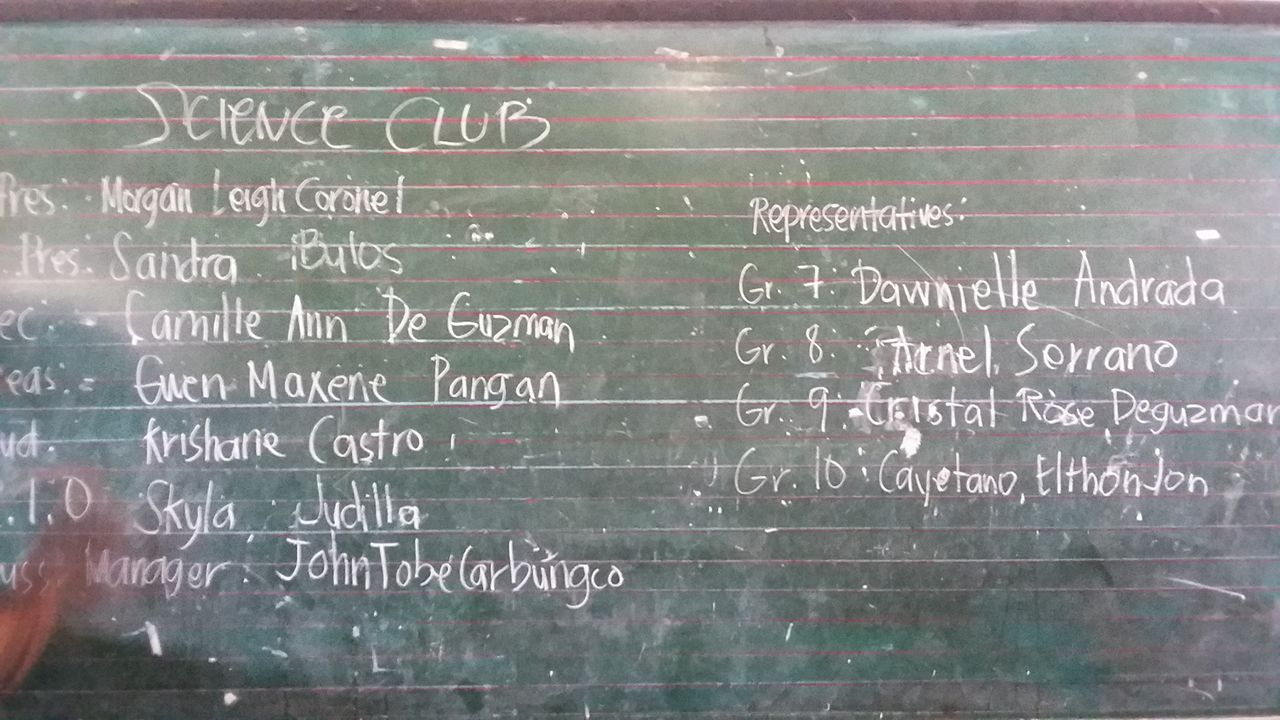 SCIENCE CLUB
Pres: Morgan Leigh Coronel
Pres: Sandra Bulos
ec: Camille Ann De Guzman
eas: Guen Maxene Pangan
ud. Krishane Castro
.I.O Skyla Judilla
uss. Manager: John Tobe Carbungco
Representatives:
Gr. 7: Dawnielle Andrada
Gr. 8: Arnel Serrano
Gr. 9: Cristal Rose Deguzman
Gr. 10: Cayetano, Elthon Jon